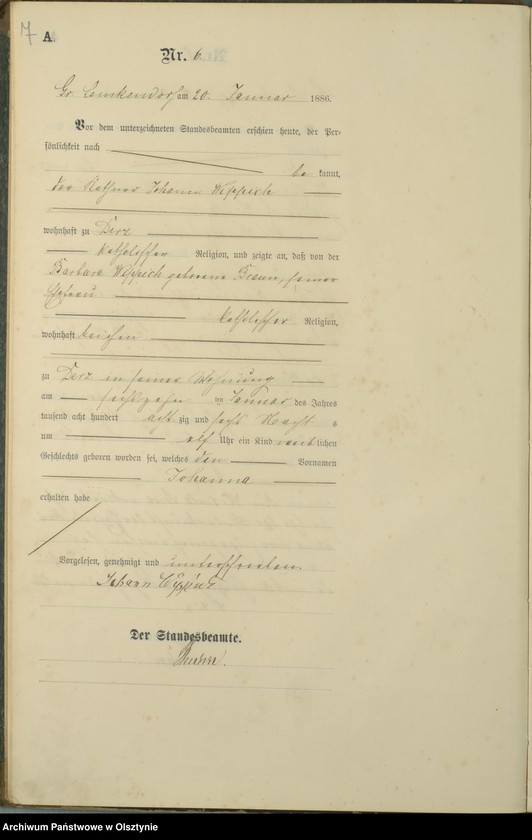 7 A.
Nr. 6
Gr. Lemkendorf am 20. Januar 1886.
Vor dem unterzeichneten Standesbeamten erschien heute, der Per-
sönlichkeit nach
be kannt,
der Käthner Johann Wippich
wohnhaft zu Derz
katholischer Religion, und zeigte an, daß von der
Barbara Wippich geborene Braun, seiner
Ehefrau
katholischer Religion,
wohnhaft bei ihm
zu Derz in seiner Wohnung
am sechszehn ten Januar des Jahres
tausend acht hundert acht zig und sechs Nachts
um elf Uhr ein Kind weib lichen
Geschlechts geboren worden sei, welches den Vornamen
Johanna
erhalten habe
Vorgelesen, genehmigt und unterschrieben.
Johann
Der Standesbeamte.
Archiwum Państwowe w Olsztynie